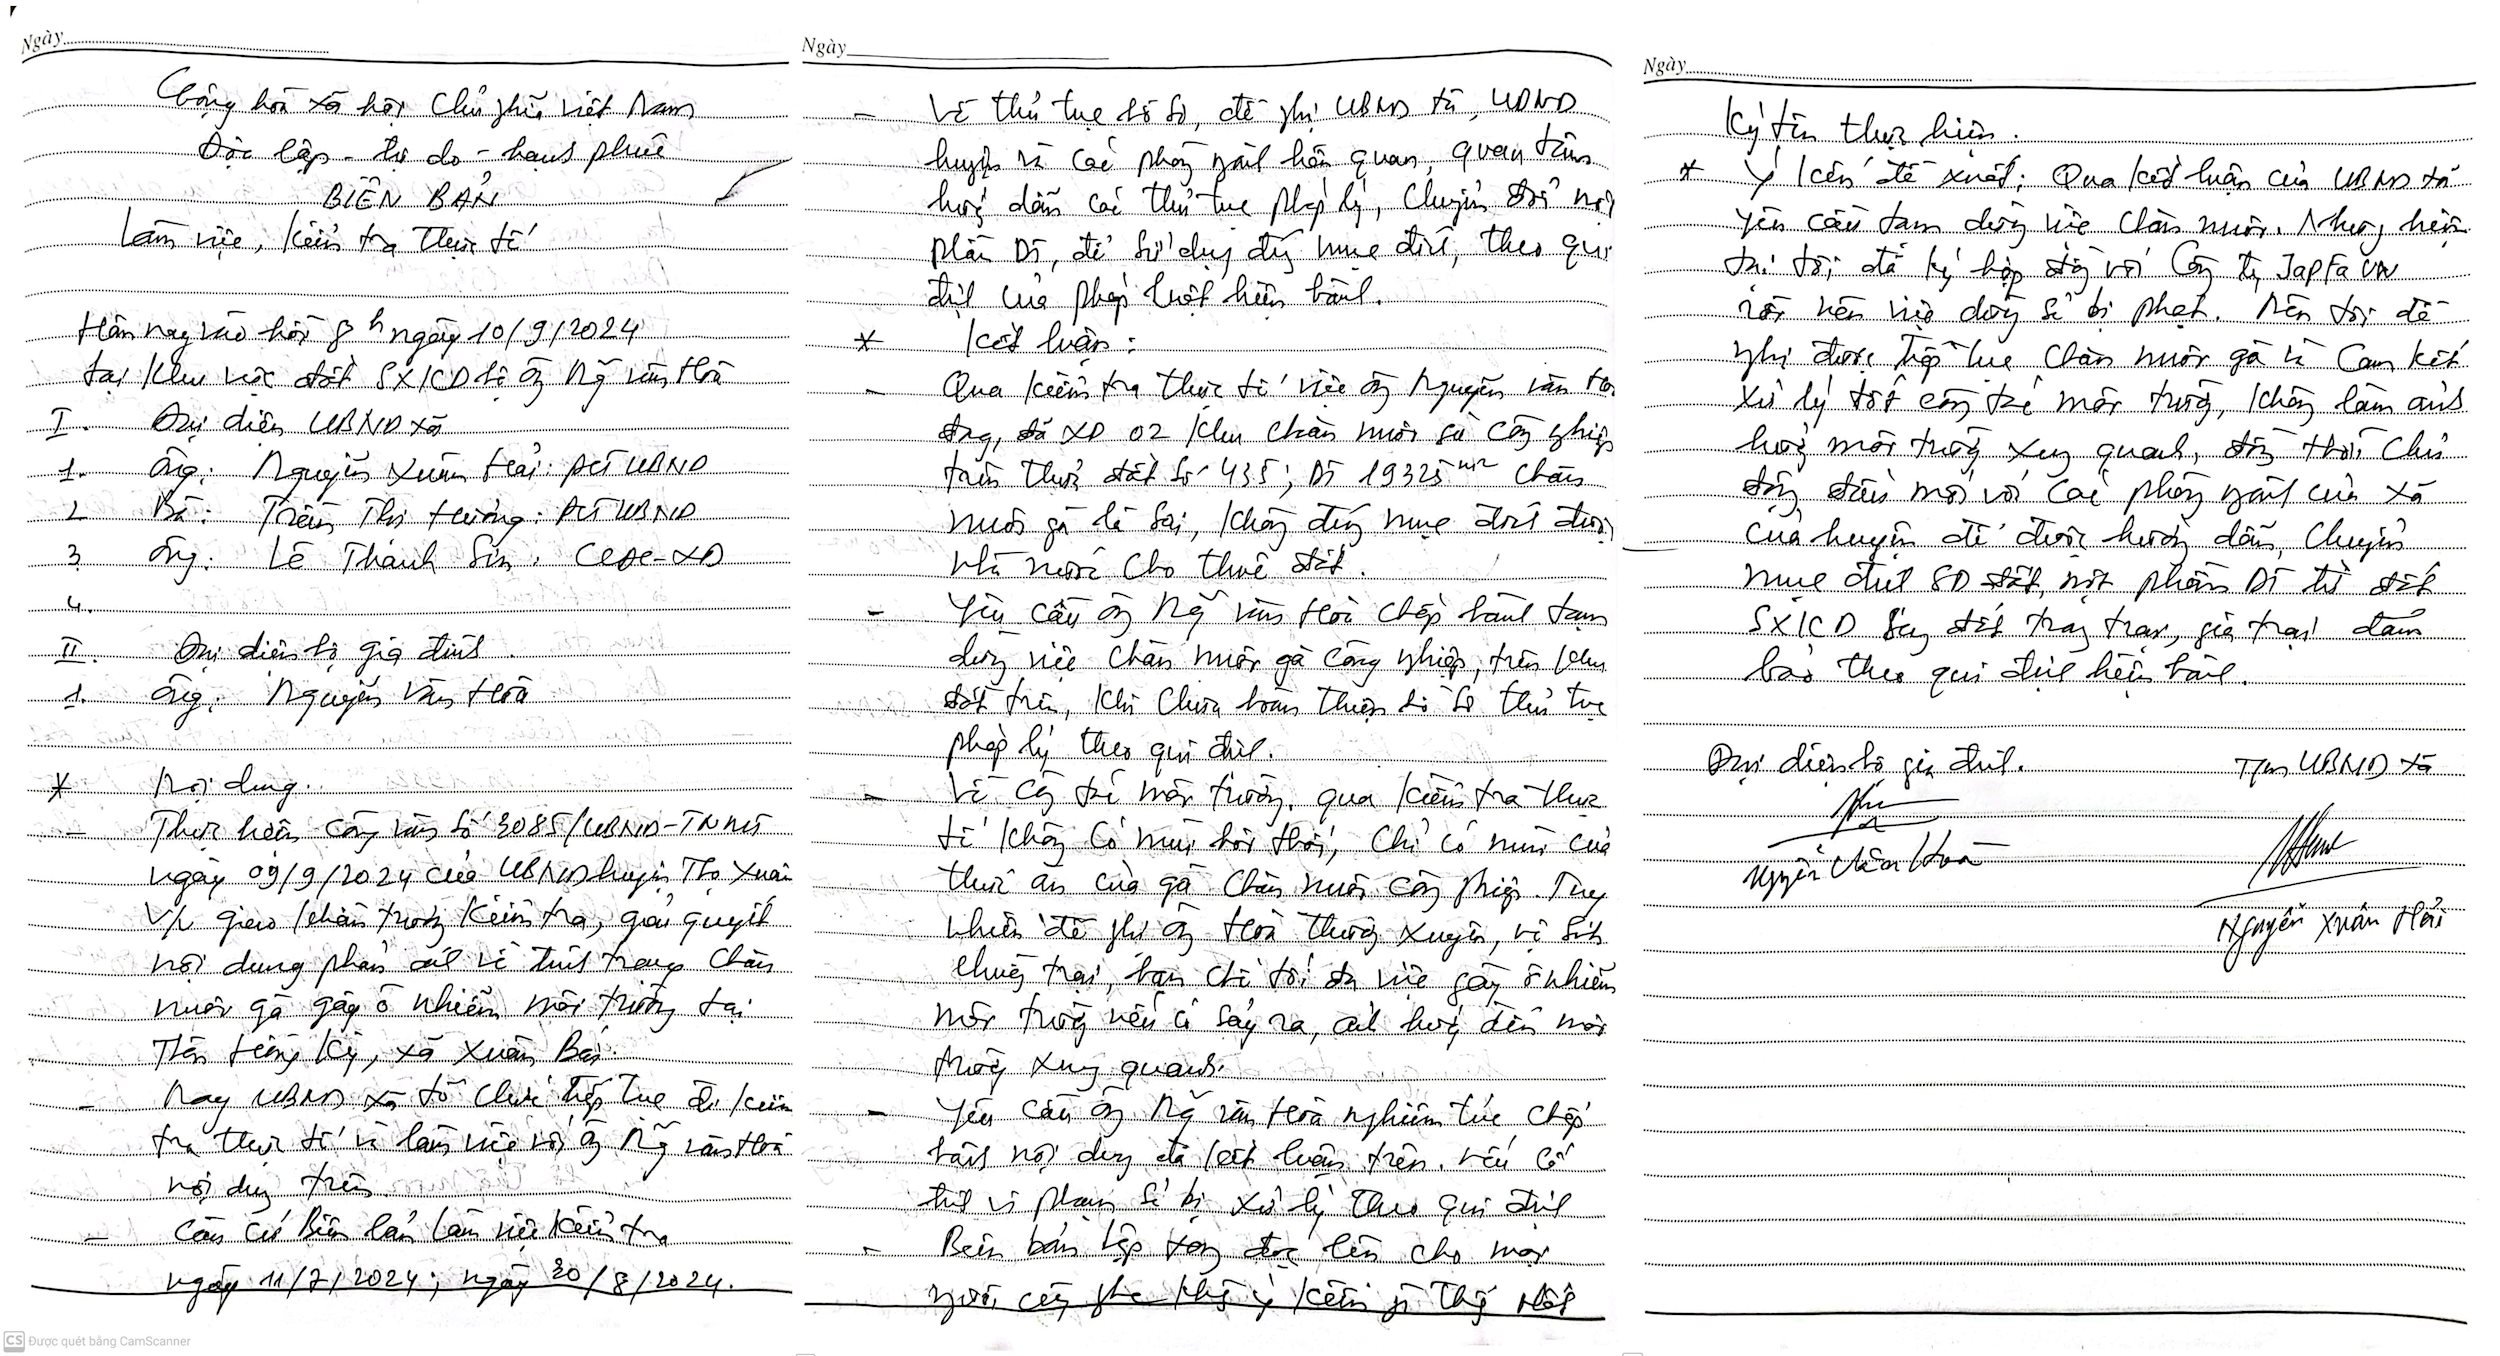 Ngày
Cộng hoà xã hội Chủ nghĩa Việt Nam
Độc lập - tự do - hạnh phúc
BIÊN BẢN
Làm việc, kiểm tra thực tế
Hôm nay vào hồi 8h ngày 10/9/2024
tại khu vực đất SXKD hộ ông Ng̃ văn Hoà
I. Đại diện UBND xã
1. ông: Nguyễn Xuân Hải: PCT UBND
2 Bà: Trần Thị Hường: PCT UBND
3 ông: Lê Thành Sơn: CCĐC-XD
4.
II. Đại diện hộ gia đình.
1. ông: Nguyễn Văn Hoà
* Nội dung.
- Thực hiện công văn số 3085/UBND-TNMT
ngày 09/9/2024 của UBND huyện Thọ Xuân
V/v giao khẩn trương kiểm tra, giải quyết
nội dung phản ánh về tình trạng chăn
nuôi gà gây ô nhiễm môi trường tại
Thôn Hồng Kỳ, xã Xuân Bái.
- Nay UBND xã tổ chức tiếp tục đi kiểm
tra thực tế và làm việc với ông Ng̃ văn Hoà
nội dung trên
- Căn cứ Biên bản làm việc kiểm tra
ngày 11/7/2024; ngày 30/8/2024.
CS Được quét bằng CamScanner
Ngày
- Về thủ tục hồ sơ, đề nghị UBND xã, UBND
huyện và các phòng ngành liên quan, quan tâm
hướng dẫn các thủ tục pháp lý, chuyển đổi một
phần Dt, để sử dụng đúng mục đích, theo qui
định của pháp luật hiện hành.
* Kết luận:
- Qua kiểm tra thực tế việc ông Nguyễn văn Hoà
đang, đã XD 02 khu chăn nuôi gà công nghiệp
trên thửa đất số 435; Dt 19325m2 chăn
nuôi gà là sai, không đúng mục đích được
nhà nước cho thuê đất.
- Yêu cầu ông Ng̃ văn Hoà chấp hành tạm
dừng việc chăn nuôi gà công nghiệp, trên khu
đất trên, khi chưa hoàn thiện hồ sơ thủ tục
pháp lý theo qui định.
- Về công tác môi trường, qua kiểm tra thực
tế không có mùi hôi thối, chỉ có mùi của
thức ăn của gà chăn nuôi công nghiệp. Tuy
nhiên đề nghị ông Hoà thường xuyên, vệ sinh
chuồng trại, hạn chế tối đa việc gây ô nhiễm
môi trường nếu có sảy ra, ảnh hưởng đến môi
trường xung quanh.
- Yêu cầu ông Ng̃ văn Hoà nghiêm túc chấp
hành nội dung đã kết luận trên. nếu cố
tình vi phạm sẽ bị xử lý theo qui định
- Biên bản lập xong đọc lên cho mọi
người cùng nghe không ý kiến gì thống nhất
Ngày
Ký tên thực hiện.
* Ý kiến đề xuất: Qua kết luận của UBND xã
yêu cầu tạm dừng việc chăn nuôi. Nhưng hiện
tại tôi đã ký hợp đồng với Công ty Japfa VN
rồi nên việc dừng sẽ bị phạt. Nên tôi đề
nghị được tiếp tục chăn nuôi gà và cam kết
xử lý tốt công tác môi trường, không làm ảnh
hưởng môi trường xung quanh, đồng thời chủ
động đấu mối với các phòng ngành của xã
của huyện để được hướng dẫn, chuyển
mục đích SD đất, một phần Dt từ đất
SXKD sang đất trang trại, gia trại đảm
bảo theo qui định hiện hành.
Đại diện hộ gia đình. TM UBND xã
Nguyễn Văn Hoà
Nguyễn Xuân Hải